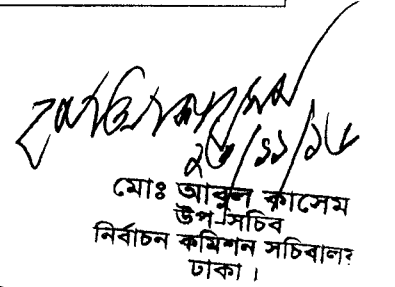 ২৩/১১/১৮
মোঃ আবুল কাসেম
উপ-সচিব
নির্বাচন কমিশন সচিবালয়
ঢাকা।